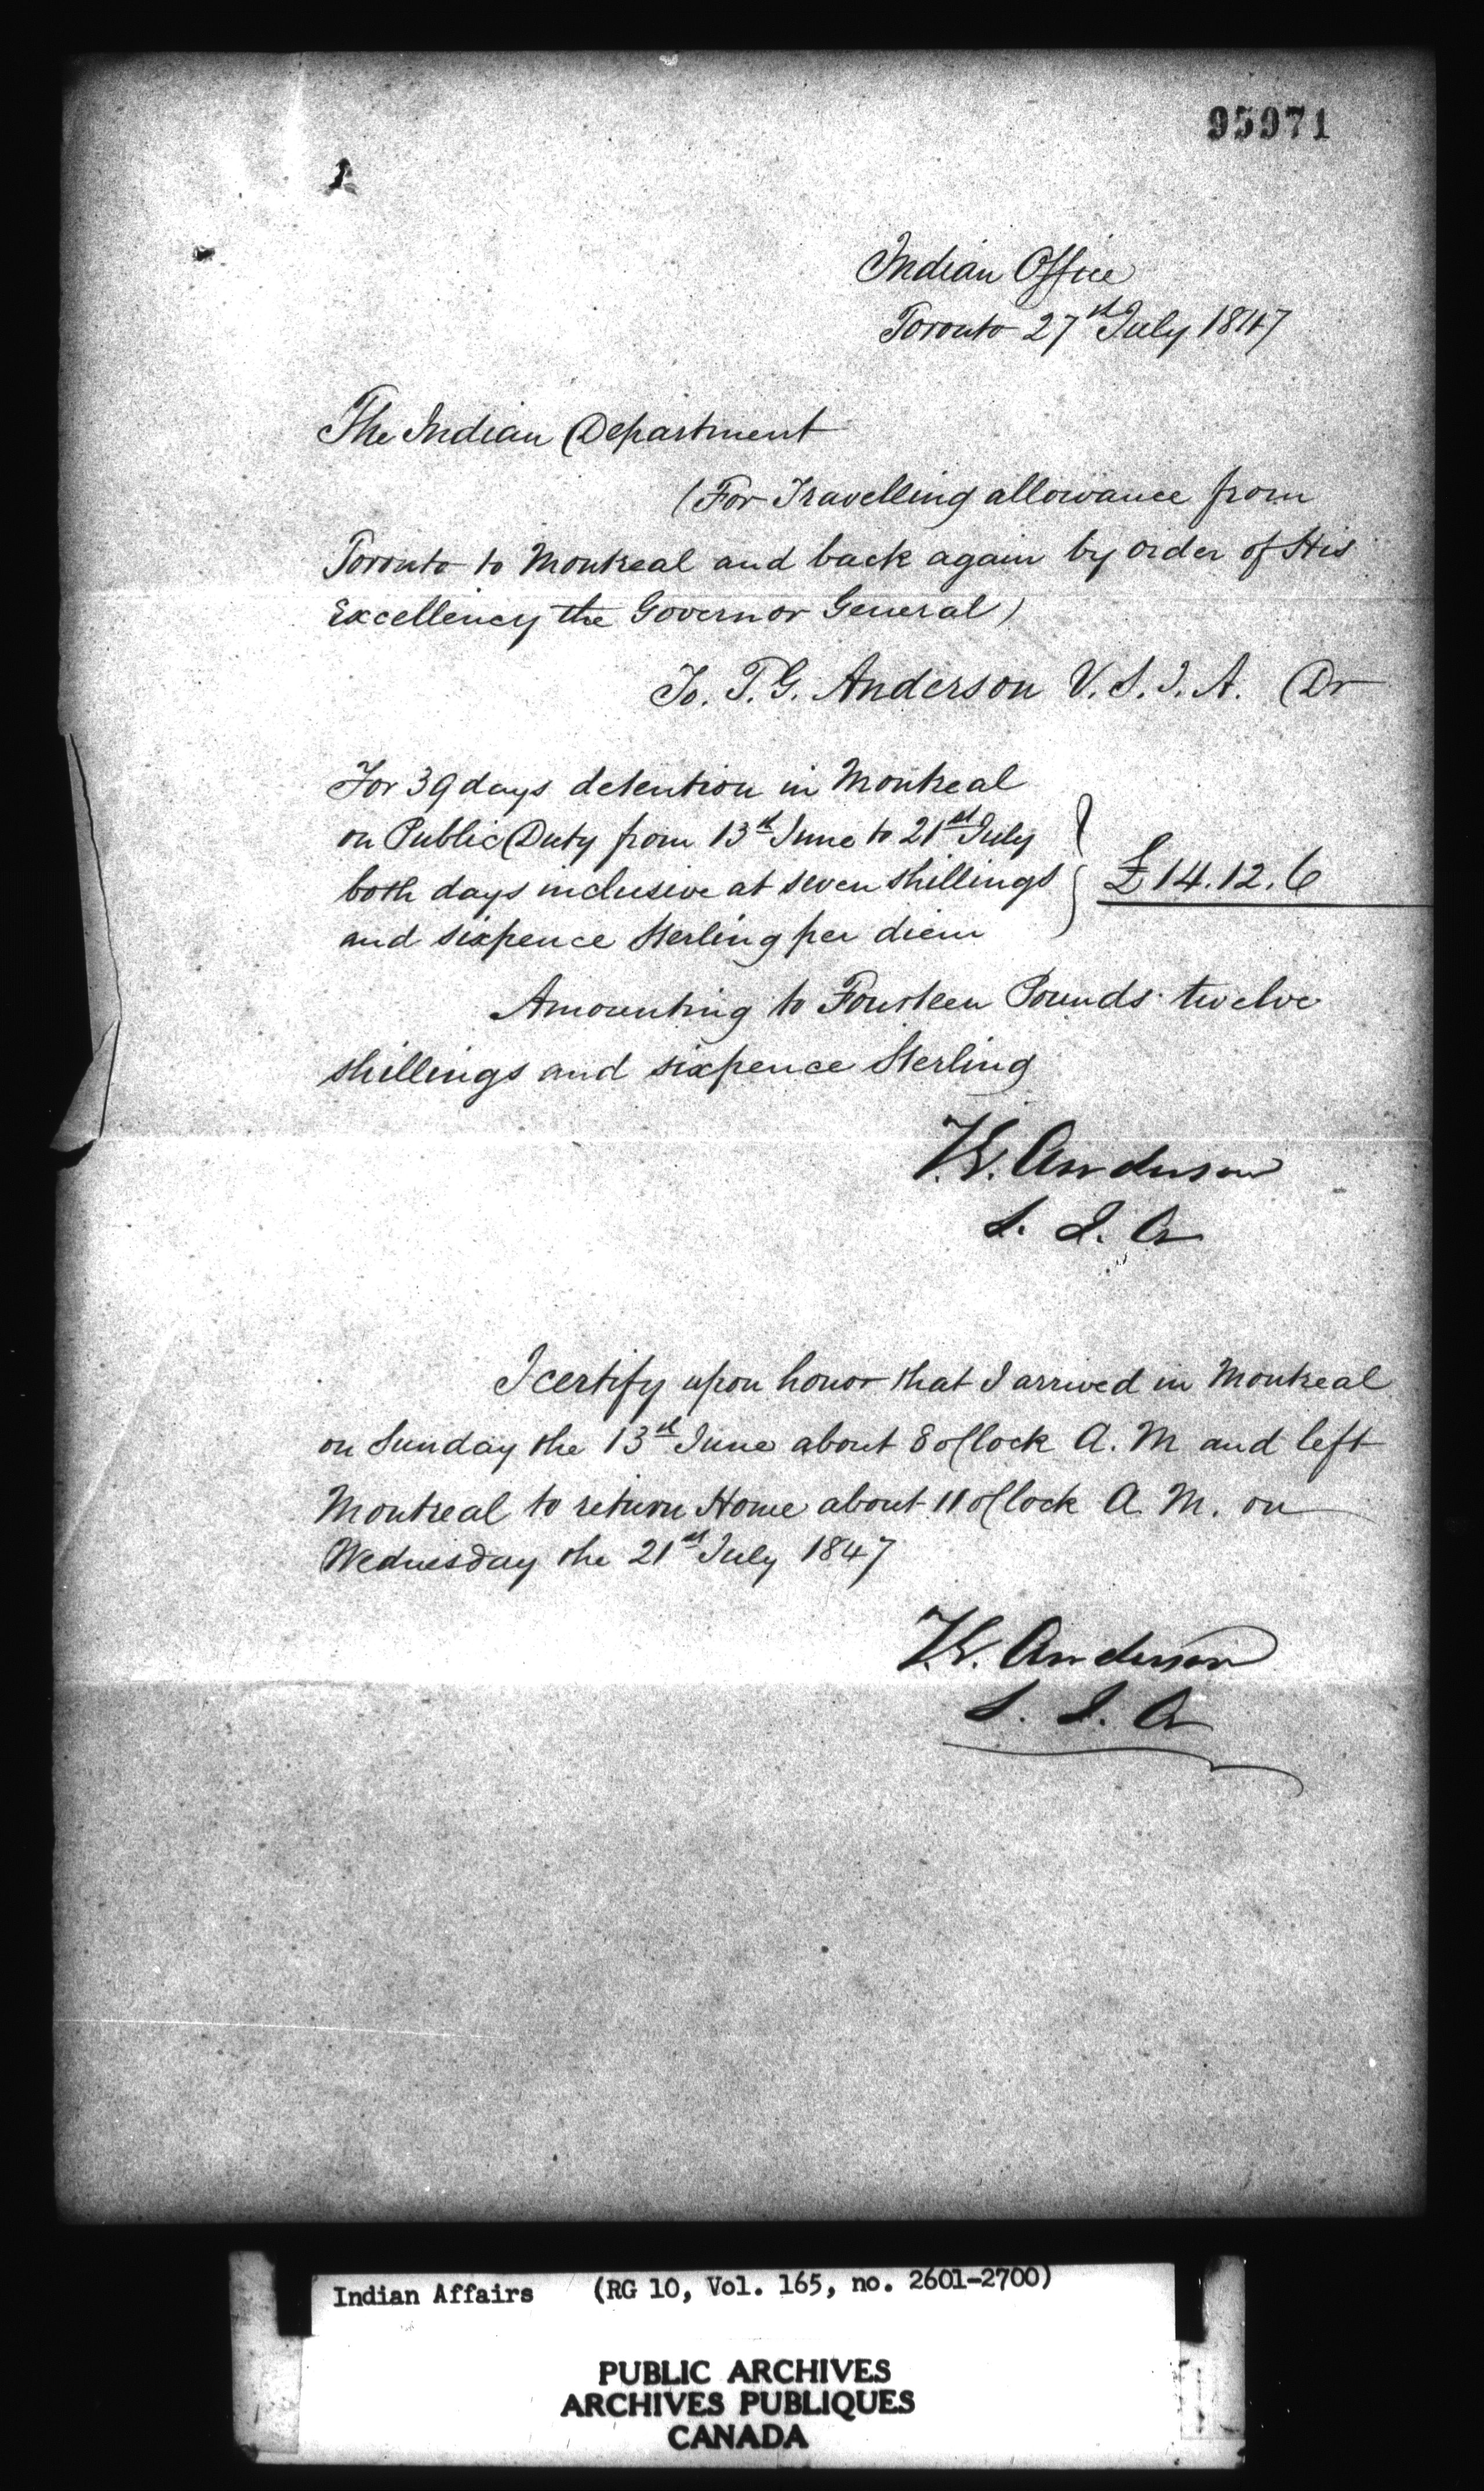 95971
Indian Office
Toronto 27th July 1847
The Indian Department
(For Travelling allowance from
Toronto to Montreal and back again by order of His
Excellency the Governor General)
To. T. G. Anderson V. S. I. A. Dr
For 39 days detention in Montreal
on Public Duty from 13th June to 21st July
both days inclusive at seven shillings
and sixpence Sterling per diem
£14.12.6
Amounting to Fourteen Pounds twelve
shillings and sixpence Sterling
T. G. Anderson
S. I. A
I certify upon honor that I arrived in Montreal
on Sunday the 13th June about 8 oClock A. M and left
Montreal to return Home about 11 oClock A. M. on
Wednesday the 21st July 1847
T. G. Anderson
S. I. A
Indian Affairs (RG 10, Vol. 165, no. 2601-2700)
PUBLIC ARCHIVES
ARCHIVES PUBLIQUES
CANADA